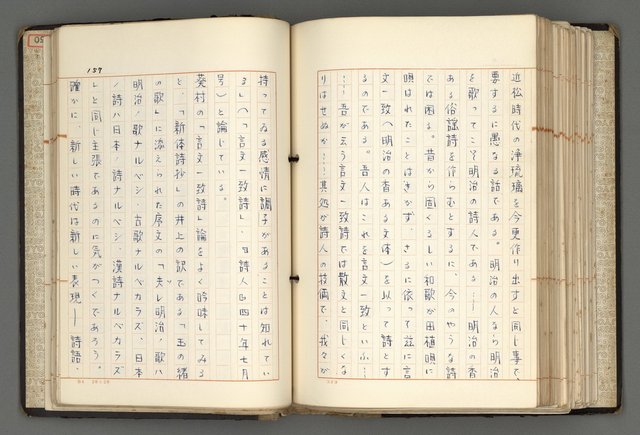 近松時代の浄瑠璃を今更作り出すと同じ事で、
要するに愚なる話である。明治の人なら明治
を歌ってこそ明治の詩人である……明治の香
ある俗謡詩を作らむとするに、今のやうな詩
では困る。昔から固くるしい和歌が田植唄に
唄はれたことはきかず、さるに依って茲に言
文一致（明治の香ある文体）を以って詩とす
るのである。吾人はこれを言文一致といふ…
……吾が云う言文一致詩では散文と同じくな
りはせぬか……其処が詩人の技倆で、我々が
137
持ってゐる感情に調子があることは知れてい
る」（「言文一致詩」、日詩人日四十年七月
号）と論じている。
葵村の「言文一致詩」論をよく吟味してみる
と、「新体詩抄」の井上の訳である「玉の緒
の歌」に添えられた序文の「夫レ明治ノ歌ハ
明治ノ歌ナルベシ、古歌ナルベカラズ、日本
ノ詩ハ日本ノ詩ナルベシ、漢詩ナルベカラズ
」と同じ主張であるのに気がつくであろう。
確かに、新しい時代は新しい表現―詩語、